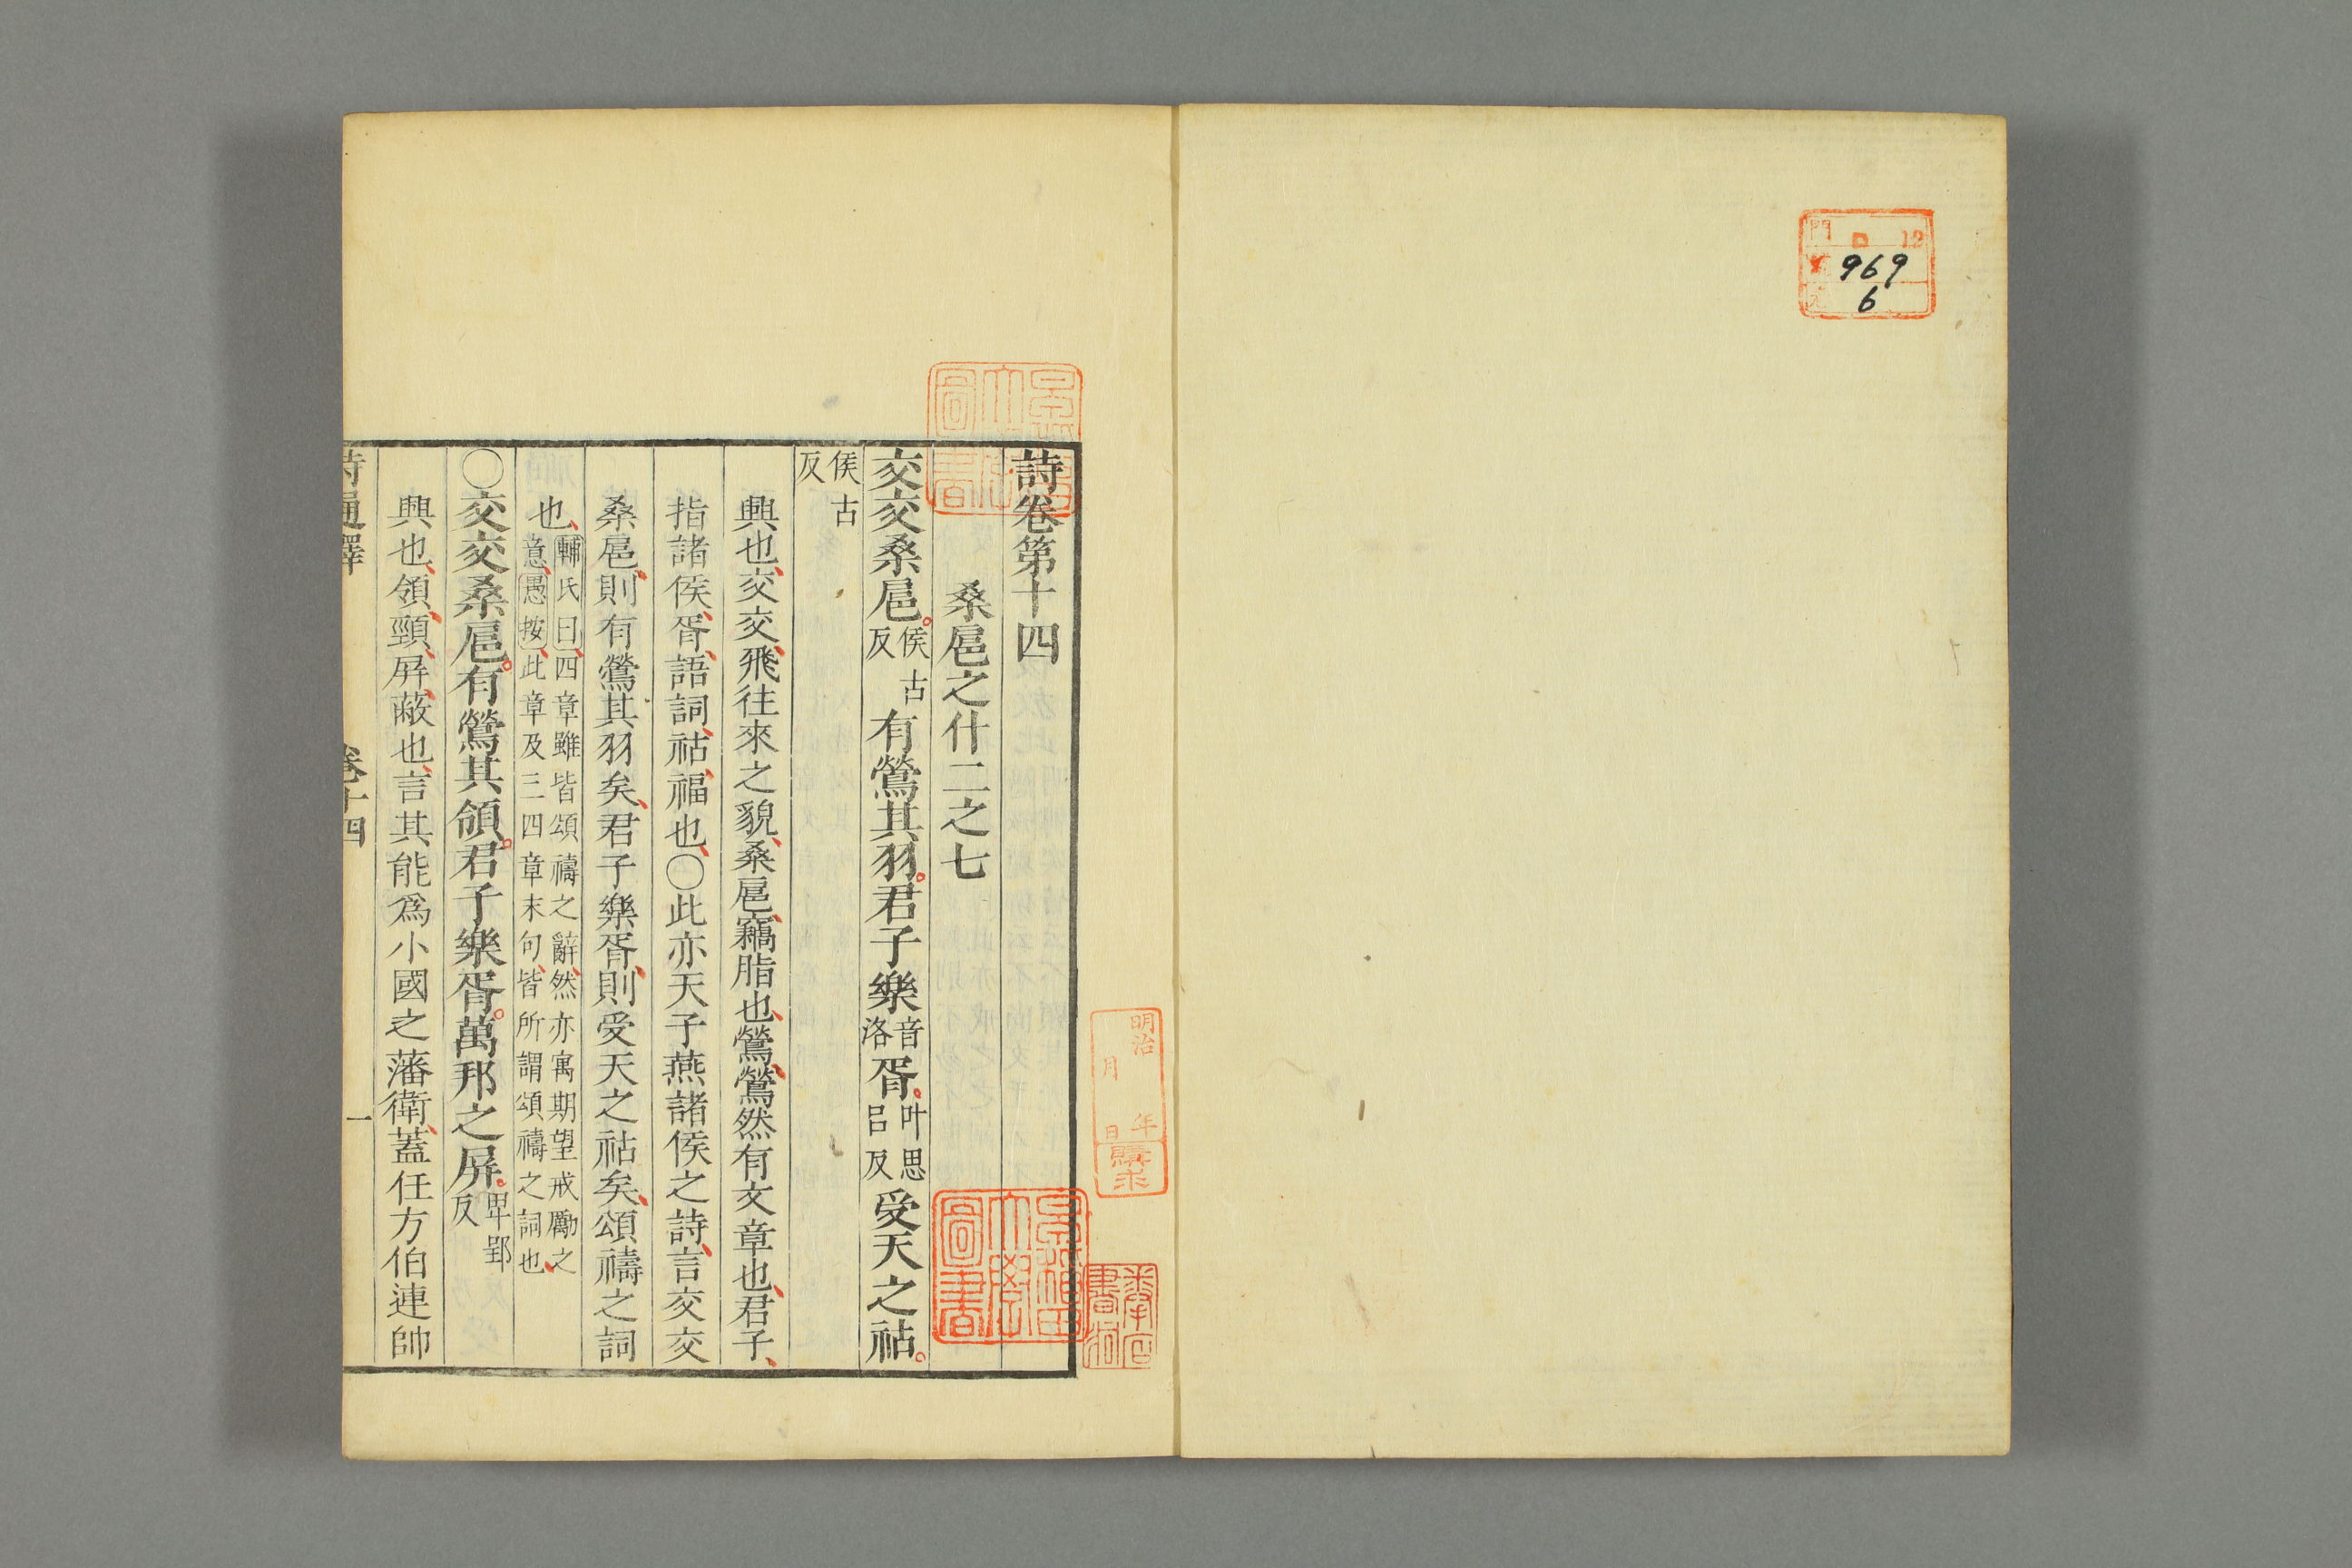 門 ロ 12
969
6
詩卷第十四
桑扈之什二之七
交交桑扈侯古反有鶯其羽君子樂音洛胥叶思吕反受天之祜
侯古反
興也交交飛往來之貌桑扈竊脂也鶯鶯然有文章也君子
指諸侯胥語詞祜福也○此亦天子燕諸侯之詩言交交
桑扈則有鶯其羽矣君子樂胥則受天之祜矣頌禱之詞
也輔氏曰四章雖皆頌禱之辭然亦寓期望戒勵之意愚按此章及三四章末句皆所謂頌禱之詞也
○交交桑扈有鶯其領君子樂胥萬邦之屏卑郢反
興也領頸屏蔽也言其能爲小國之藩衛蓋任方伯連帥
詩通釋 卷十四 一
明治 年 月 日購求